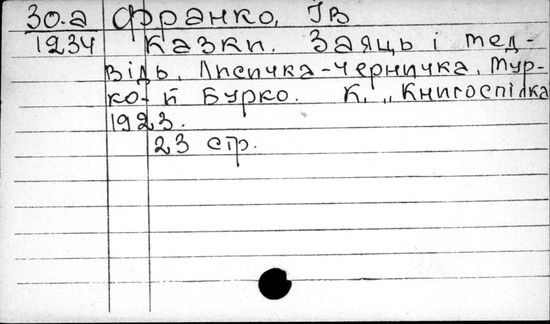 30.а Франко, Ів
1234 Казки. Заяць і мед-
відь, Лисичка-Черничка, Мур-
ко й Бурко. К, „Книгоспілка
1923.
23 стр.